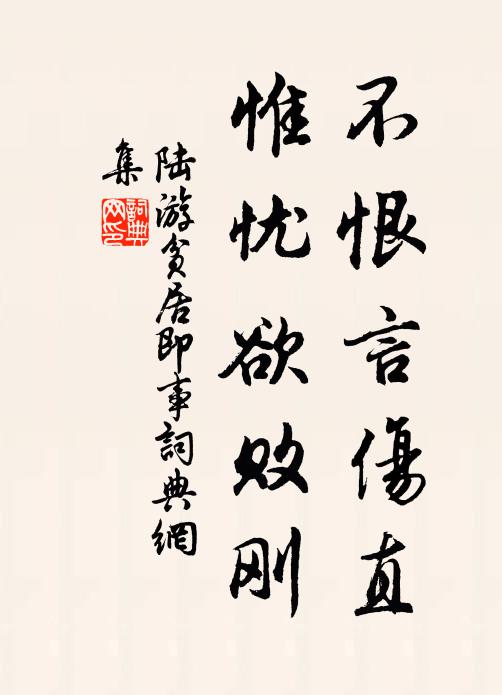 不恨言傷直
惟忧欲败刚
陆游贫居即事詞典網
集
詞典
网印